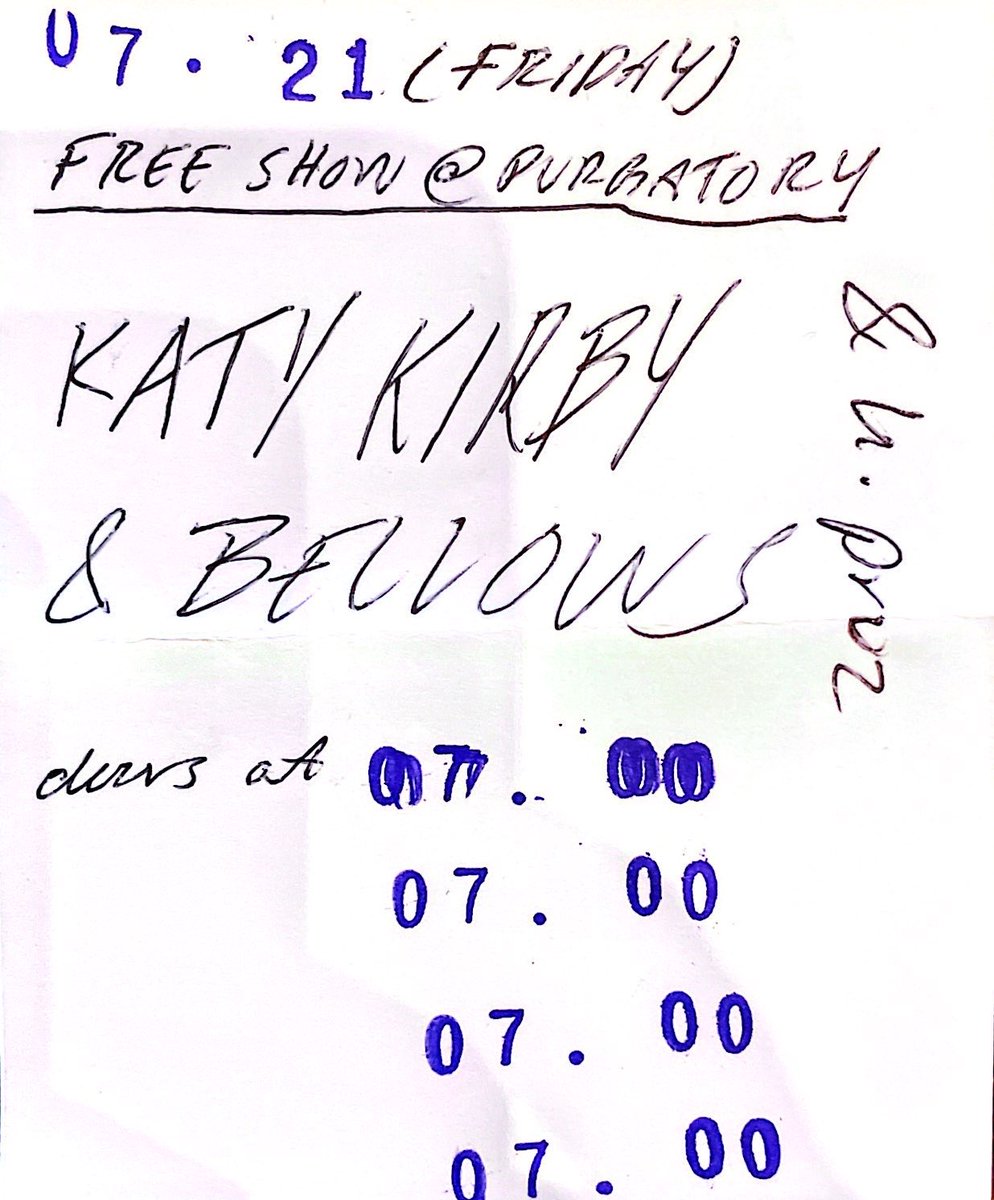 07. 21 (FRIDAY)
FREE SHOW @ PURGATORY
KATY KIRBY
& BELLOWS
& h. pruz
doors at 07. 00
07. 00
07. 00
07. 00